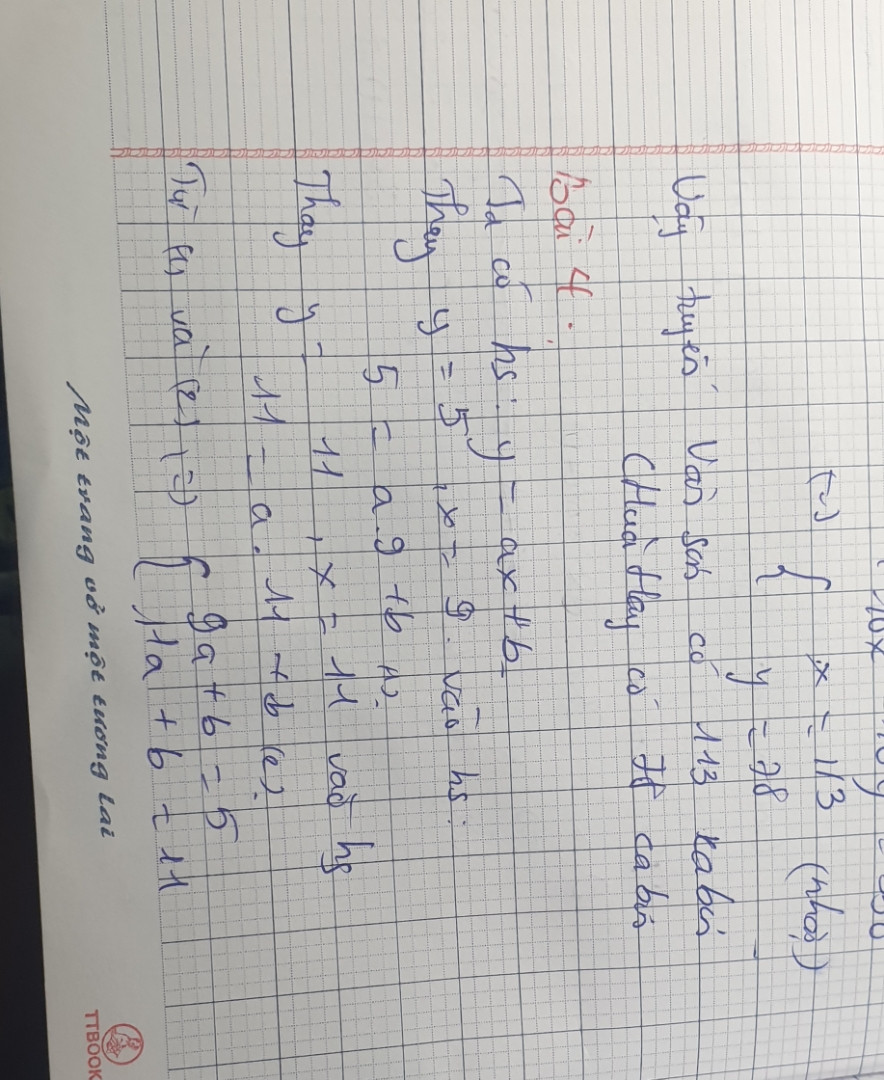 10x 10y
(=) { x = 113
y = 78 (nhận)
Vậy tuyến Vân Sơn có 113 cabin
Chùa Hang có 78 cabin
Bài 4:
Ta có hs: y = ax + b
Thay y = 5, x = 9 vào hs:
5 = a.9 + b (1)
Thay y = 11, x = 11 vào hs
11 = a.11 + b (2)
Từ (1) và (2) (=) { 9a + b = 5
11a + b = 11
Một trang vở một tương lai
TTBOOK